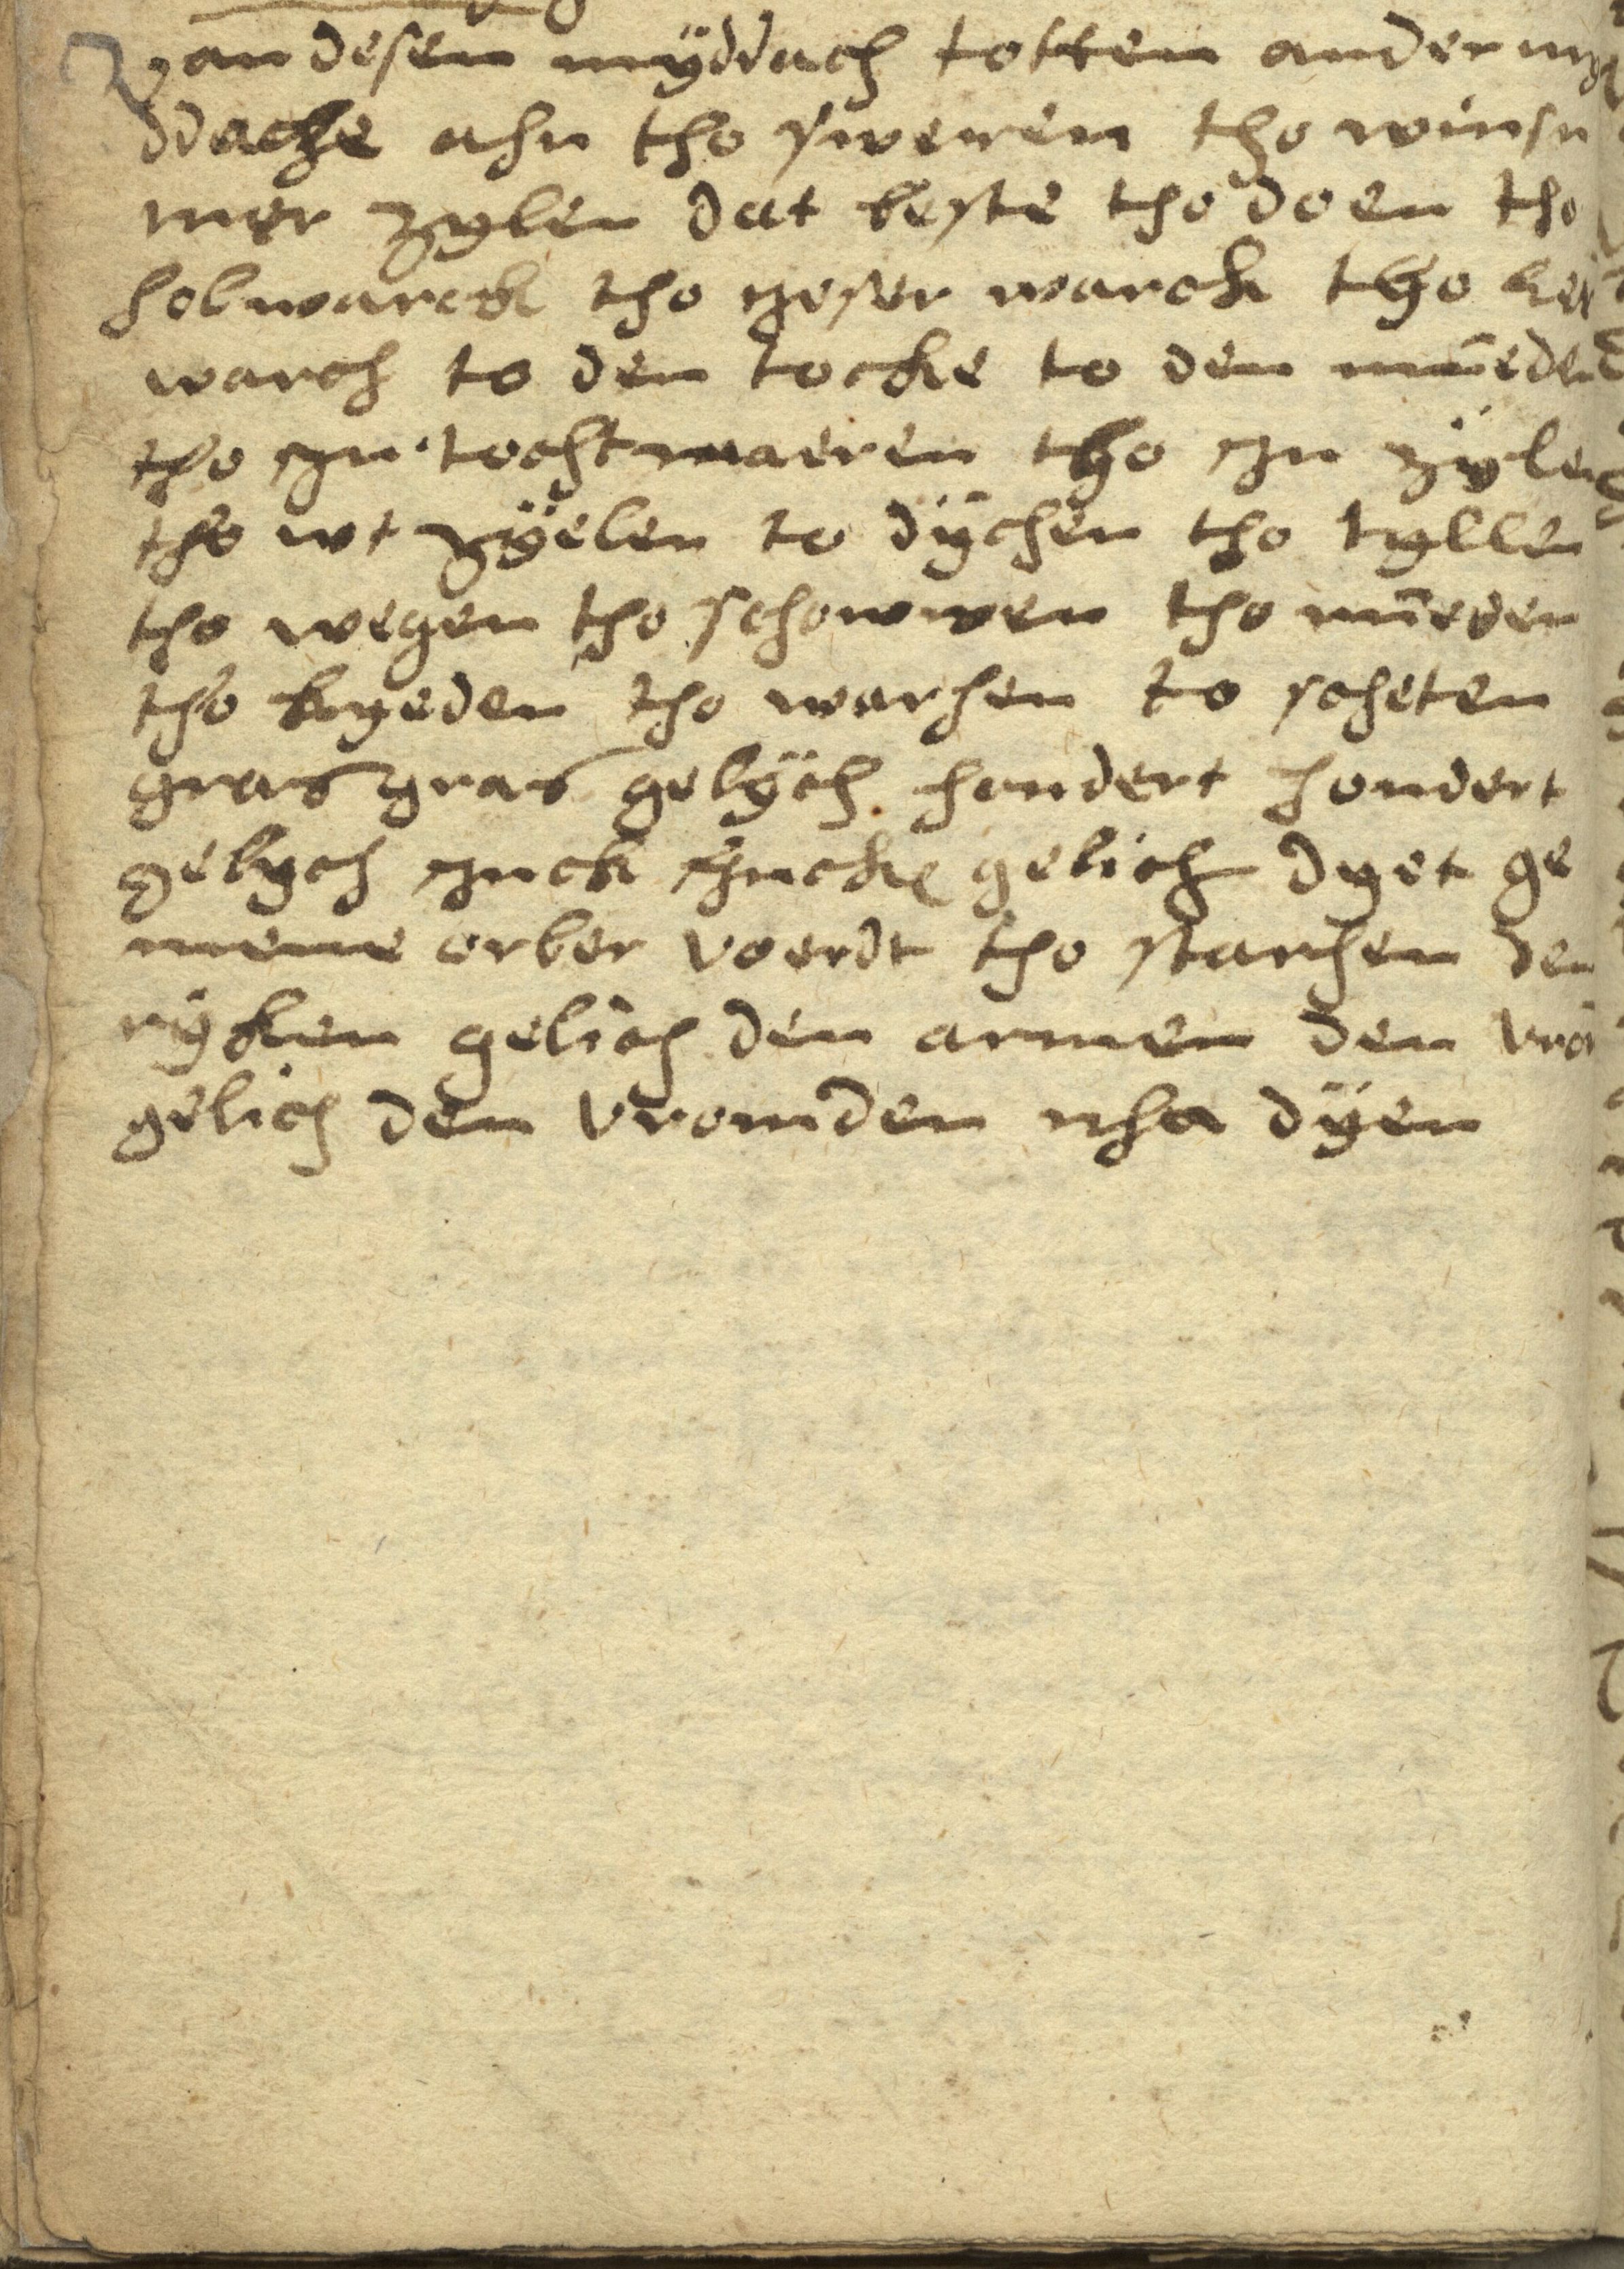 van desen myddach totten ander my
ddache ahn tho sweren tho winsu
mer zylen dat beste tho doen tho
holwarck tho yeser warck tho lei
warch to den tocke to den mueden
tho yn tochtmaeren tho yn zyle
tho wt zÿelen to dÿchen tho tyllen
tho wegen tho schowwen tho mueden
tho bryeden tho warhen to scheten
gras gras gelÿch hondert hondert
gelych juck jucke gelich dyet ge
meene orber voerdt tho starhen den
rÿken gelich den armen den vrei
gelich den vromden nha dÿen